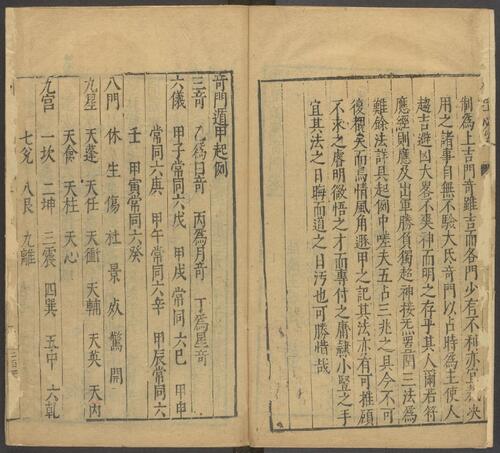 制為上吉門竒雖吉而各門少有不利亦
用之諸事自無不驗大氐竒門以占時為主使人
趨吉避凶大畧不爽神而明之存乎其人爾若符
應經則應及出軍勝負獨超神接炁置閏三法為
雖餘法詳具起例中嗟夫五占三兆之具今不可
復覩矣而鳥情風角遯甲之記其法亦有可推顧
不求之虗明微悟之才而專付之庸隸小豎之手
宜其法之日晦而道之日汚也可勝惜哉
竒門遁甲起例
三竒 乙為日竒 丙為月竒 丁為星竒
六儀 甲子常同六戊 甲戌常同六己 甲申
常同六庚 甲午常同六辛 甲辰常同六
壬 甲寅常同六癸
八門 休 生 傷 杜 景 死 驚 開
九星 天蓬 天任 天衝 天輔 天英 天內
天禽 天柱 天心
九宫 一坎 二坤 三震 四巽 五中 六乾
七兌 八艮 九離